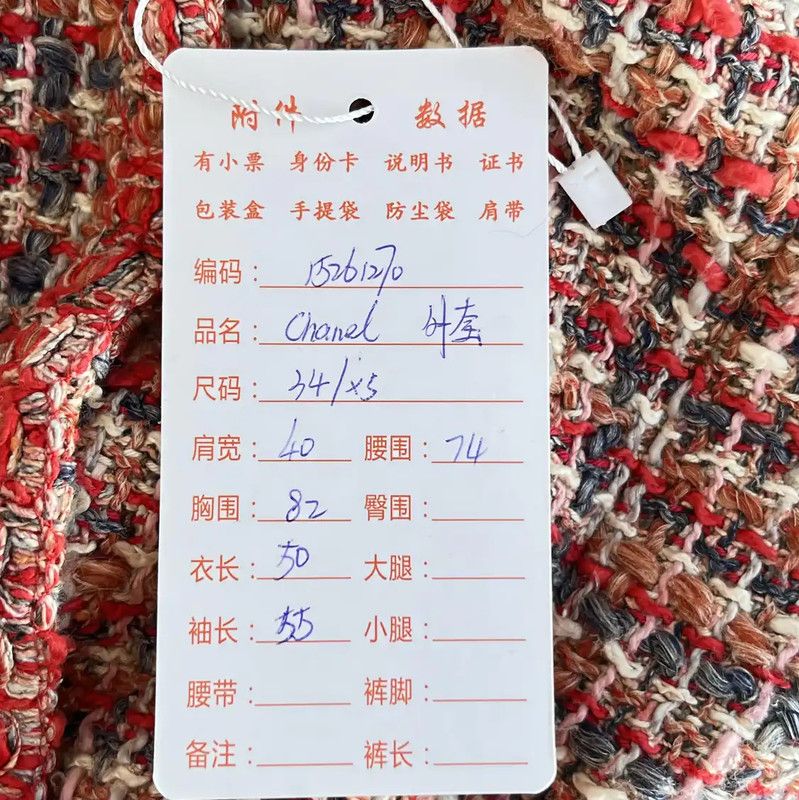 附件 数据
有小票 身份卡 说明书 证书
包装盒 手提袋 防尘袋 肩带
编码：15261270
品名：Chanel 外套
尺码：34/xs
肩宽：40 腰围：74
胸围：82 臀围：
衣长：50 大腿：
袖长：55 小腿：
腰带： 裤脚：
备注： 裤长：